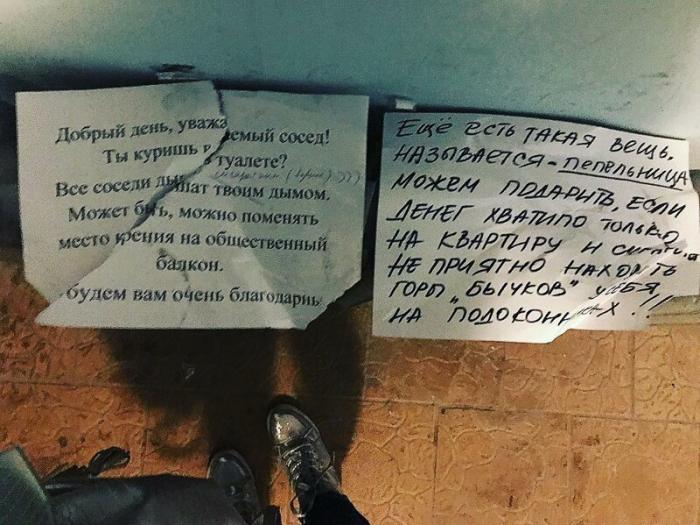 Добрый день, уважаемый сосед!
Ты куришь в туалете?
Все соседи дышат твоим дымом.
Может быть, можно поменять
место курения на общественный
балкон.
будем вам очень благодарны
ЕЩЁ ЕСТЬ ТАКАЯ ВЕЩЬ.
НАЗЫВАЕТСЯ - ПЕПЕЛЬНИЦА
МОЖЕМ ПОДАРИТЬ, ЕСЛИ
ДЕНЕГ ХВАТИЛО ТОЛЬКО
НА КВАРТИРУ И
НЕ ПРИЯТНО НАХОДИТЬ
ГОРЫ „БЫЧКОВ" У СЕБЯ
НА ПОДОКОННИКАХ!!